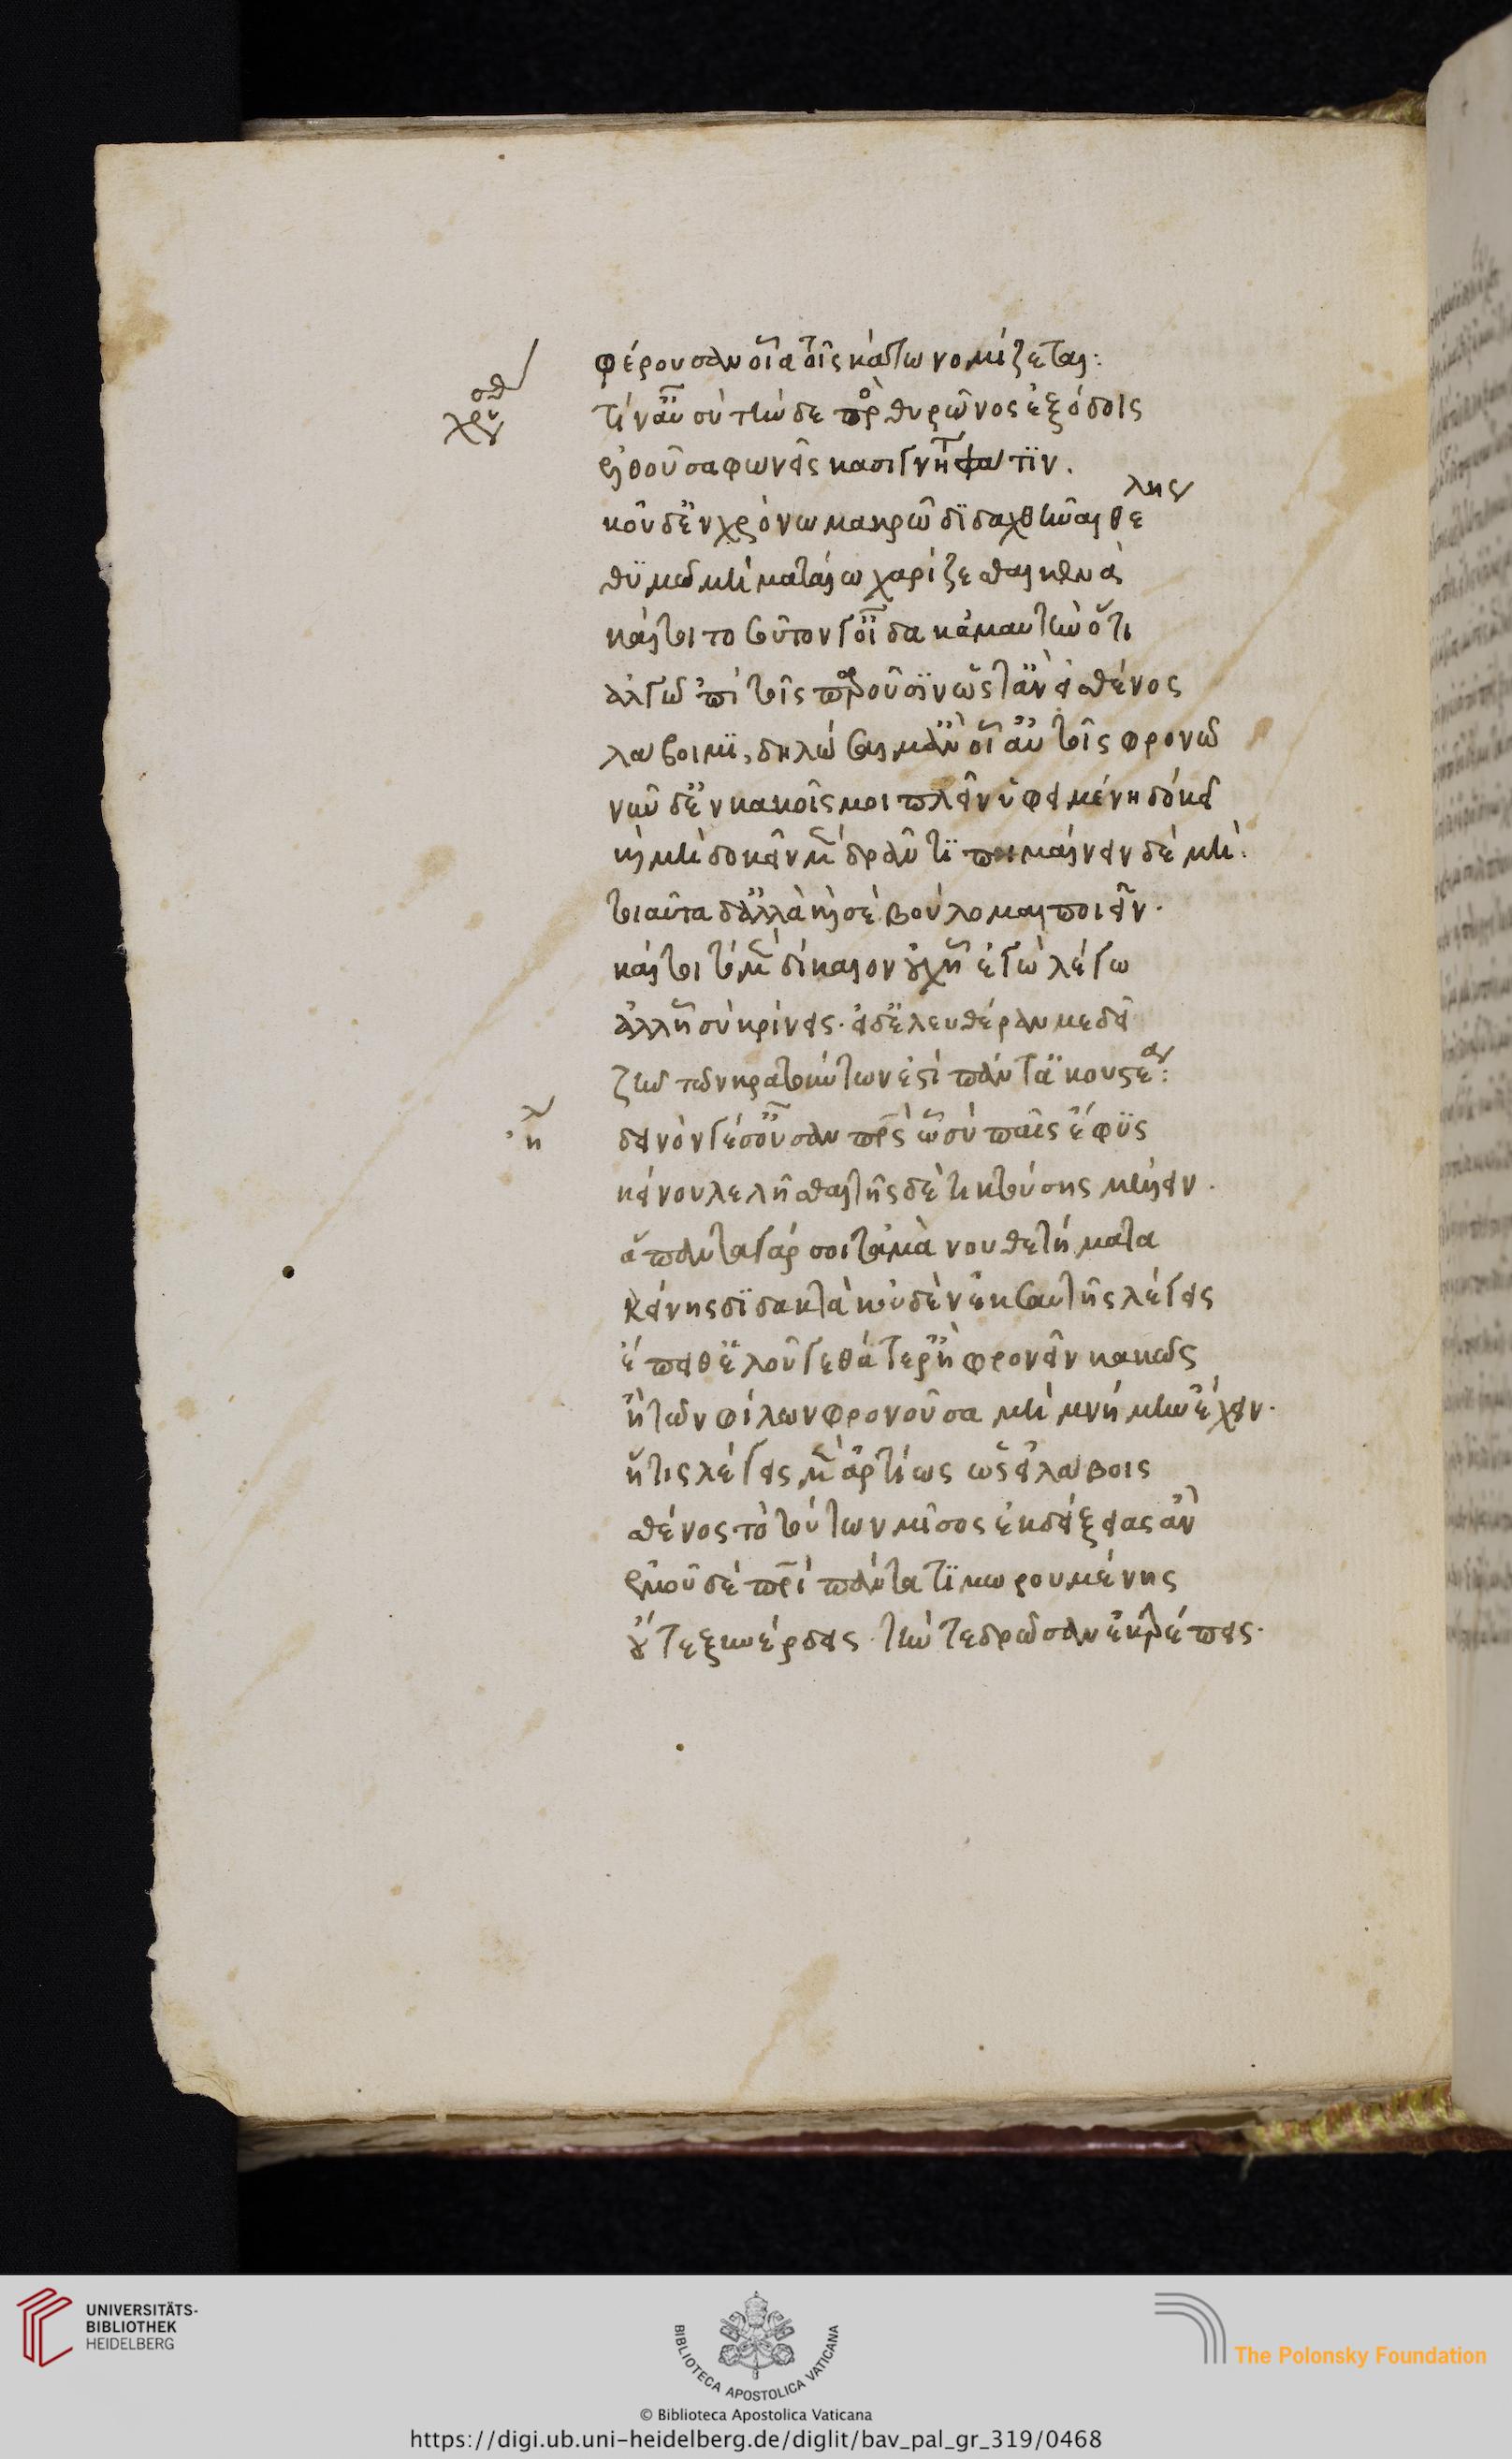 φέρουσαν οἷα τοῖς κάτω νομίζεται:
χρυσοθ
τίν' αὖ σὺ τήνδε πρὸς θυρῶνος ἐξόδοις
ἐλθοῦσα φωνεῖς κασιγνήτη φάτιν.
κοὐδ' ἐν χρόνω μακρῶ διδαχθῆναι θέλεις
θυμῶ ματαίω μὴ χαρίζεσθαι κενά
καίτοι τοσοῦτον γ' οἶδα κἀμαυτὴν ὅτι
ἀλγῶ 'πὶ τοῖς παροῦσιν ὥστ' ἂν εἰ σθένος
λάβοιμι, δηλώσαιμ' ἂν οἷ' αὐτοῖς φρονῶ
νῦν δ' ἐν κακοῖς μοι πλεῖν ὑφειμένη δοκεῖ
καὶ μὴ δοκεῖν μὲν δρᾶν τι πημαίνειν δὲ μή.
τοιαῦτα δ' ἀλλὰ καὶ σὲ βούλομαι ποιεῖν.
καίτοι τὸ μὲν δίκαιον οὐχ ᾗ 'γὼ λέγω
ἀλλ' ᾗ σὺ κρίνεις. εἰ δ' ἐλευθέραν με δεῖ
ζῆν τῶν κρατούντων ἐστὶ πάντ' ἀκουστέα:
ἠλ
δεινόν γέ σ' οὖσαν πατρὸς οὗ σὺ παῖς ἔφυς
κείνου λελῆσθαι τῆς δὲ τικτούσης μέλειν.
ἅπαντα γάρ σοι τἀμὰ νουθετήματα
κείνης διδακτὰ κοὐδὲν ἐκ σαυτῆς λέγεις
ἔπειθ' ἑλοῦ γε θάτερ' ἢ φρονεῖν κακῶς
ἢ τῶν φίλων φρονοῦσα μὴ μνήμην ἔχειν.
ἥτις λέγεις μὲν ἀρτίως ὡς εἰ λάβοις
σθένος τὸ τούτων μῖσος ἐκδείξειας ἄν
ἐμοῦ δὲ πατρὶ πάντα τιμωρουμένης
οὔτε ξυνέρδεις τήν τε δρῶσαν ἐκτρέπεις.
UNIVERSITÄTS-
BIBLIOTHEK
HEIDELBERG
BIBLIOTECA APOSTOLICA VATICANA
The Polonsky Foundation
© Biblioteca Apostolica Vaticana
https://digi.ub.uni-heidelberg.de/diglit/bav_pal_gr_319/0468